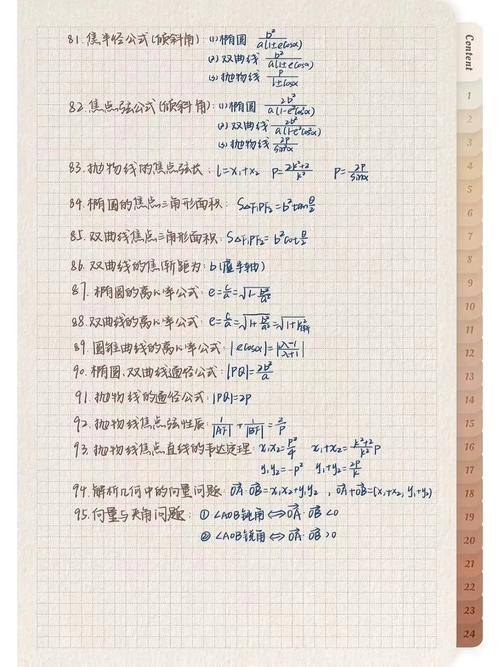 Content
81. 焦半径公式(倾斜角): (1) 椭圆 b²/a(1±ecosα)
(2) 双曲线 b²/a(1±ecosα)
(3) 抛物线 P/1±cosα
82. 焦点弦公式(倾斜角): (1) 椭圆 2b²/a(1-e²cos²α)
(2) 双曲线 2b²/a(1-e²cos²α)
(3) 抛物线 2P/sin²α
83. 抛物线的焦点弦长: l=x₁+x₂ P=2k²+2/k² P=2P/sin²α
84. 椭圆的焦点三角形面积: S△F₁PF₂=b²tanθ/2
85. 双曲线焦点三角形面积: S△F₁PF₂=b²cotθ/2
86. 双曲线的焦渐距为: b(虚半轴)
87. 椭圆的离心率公式: e=c/a=√1-b²/a²
88. 双曲线的离心率公式: e=c/a=√1+b²/a²=√1+k²渐
89. 圆锥曲线的离心率公式: |ecosα|=|λ-1/λ+1|
90. 椭圆、双曲线通径公式: |PQ|=2b²/a
91. 抛物线的通径公式: |PQ|=2P
92. 抛物线焦点弦性质: 1/|AF|+1/|BF|=2/P
93. 抛物线焦点直线的韦达定理: x₁x₂=P²/4 x₁+x₂=k²+2/k² P
y₁y₂=-P² y₁+y₂=2P/k
94. 解析几何中的向量问题: OA·OB=x₁x₂+y₁y₂ , OA+OB=(x₁+x₂, y₁+y₂)
95. 向量与夹角问题: ① ∠AOB钝角⇔OA·OB<0
② ∠AOB锐角⇔OA·OB>0
1
2
3
4
5
6
7
8
9
10
11
12
13
14
15
16
17
18
19
20
21
22
23
24